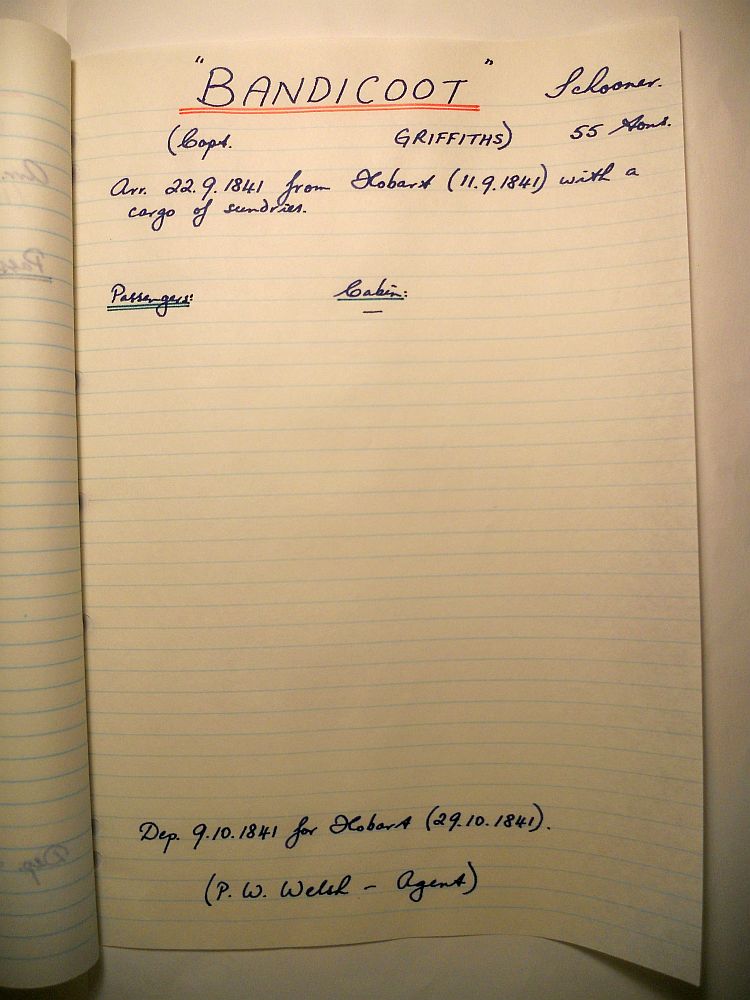 "BANDICOOT" Schooner.
(Capt. GRIFFITHS) 55 tons.
Arr. 22.9.1841 from Hobart (11.9.1841) with a
cargo of sundries.
Passengers: Cabin:
—
Dep. 9.10.1841 for Hobart (29.10.1841).
(P. W. Welsh - Agent)